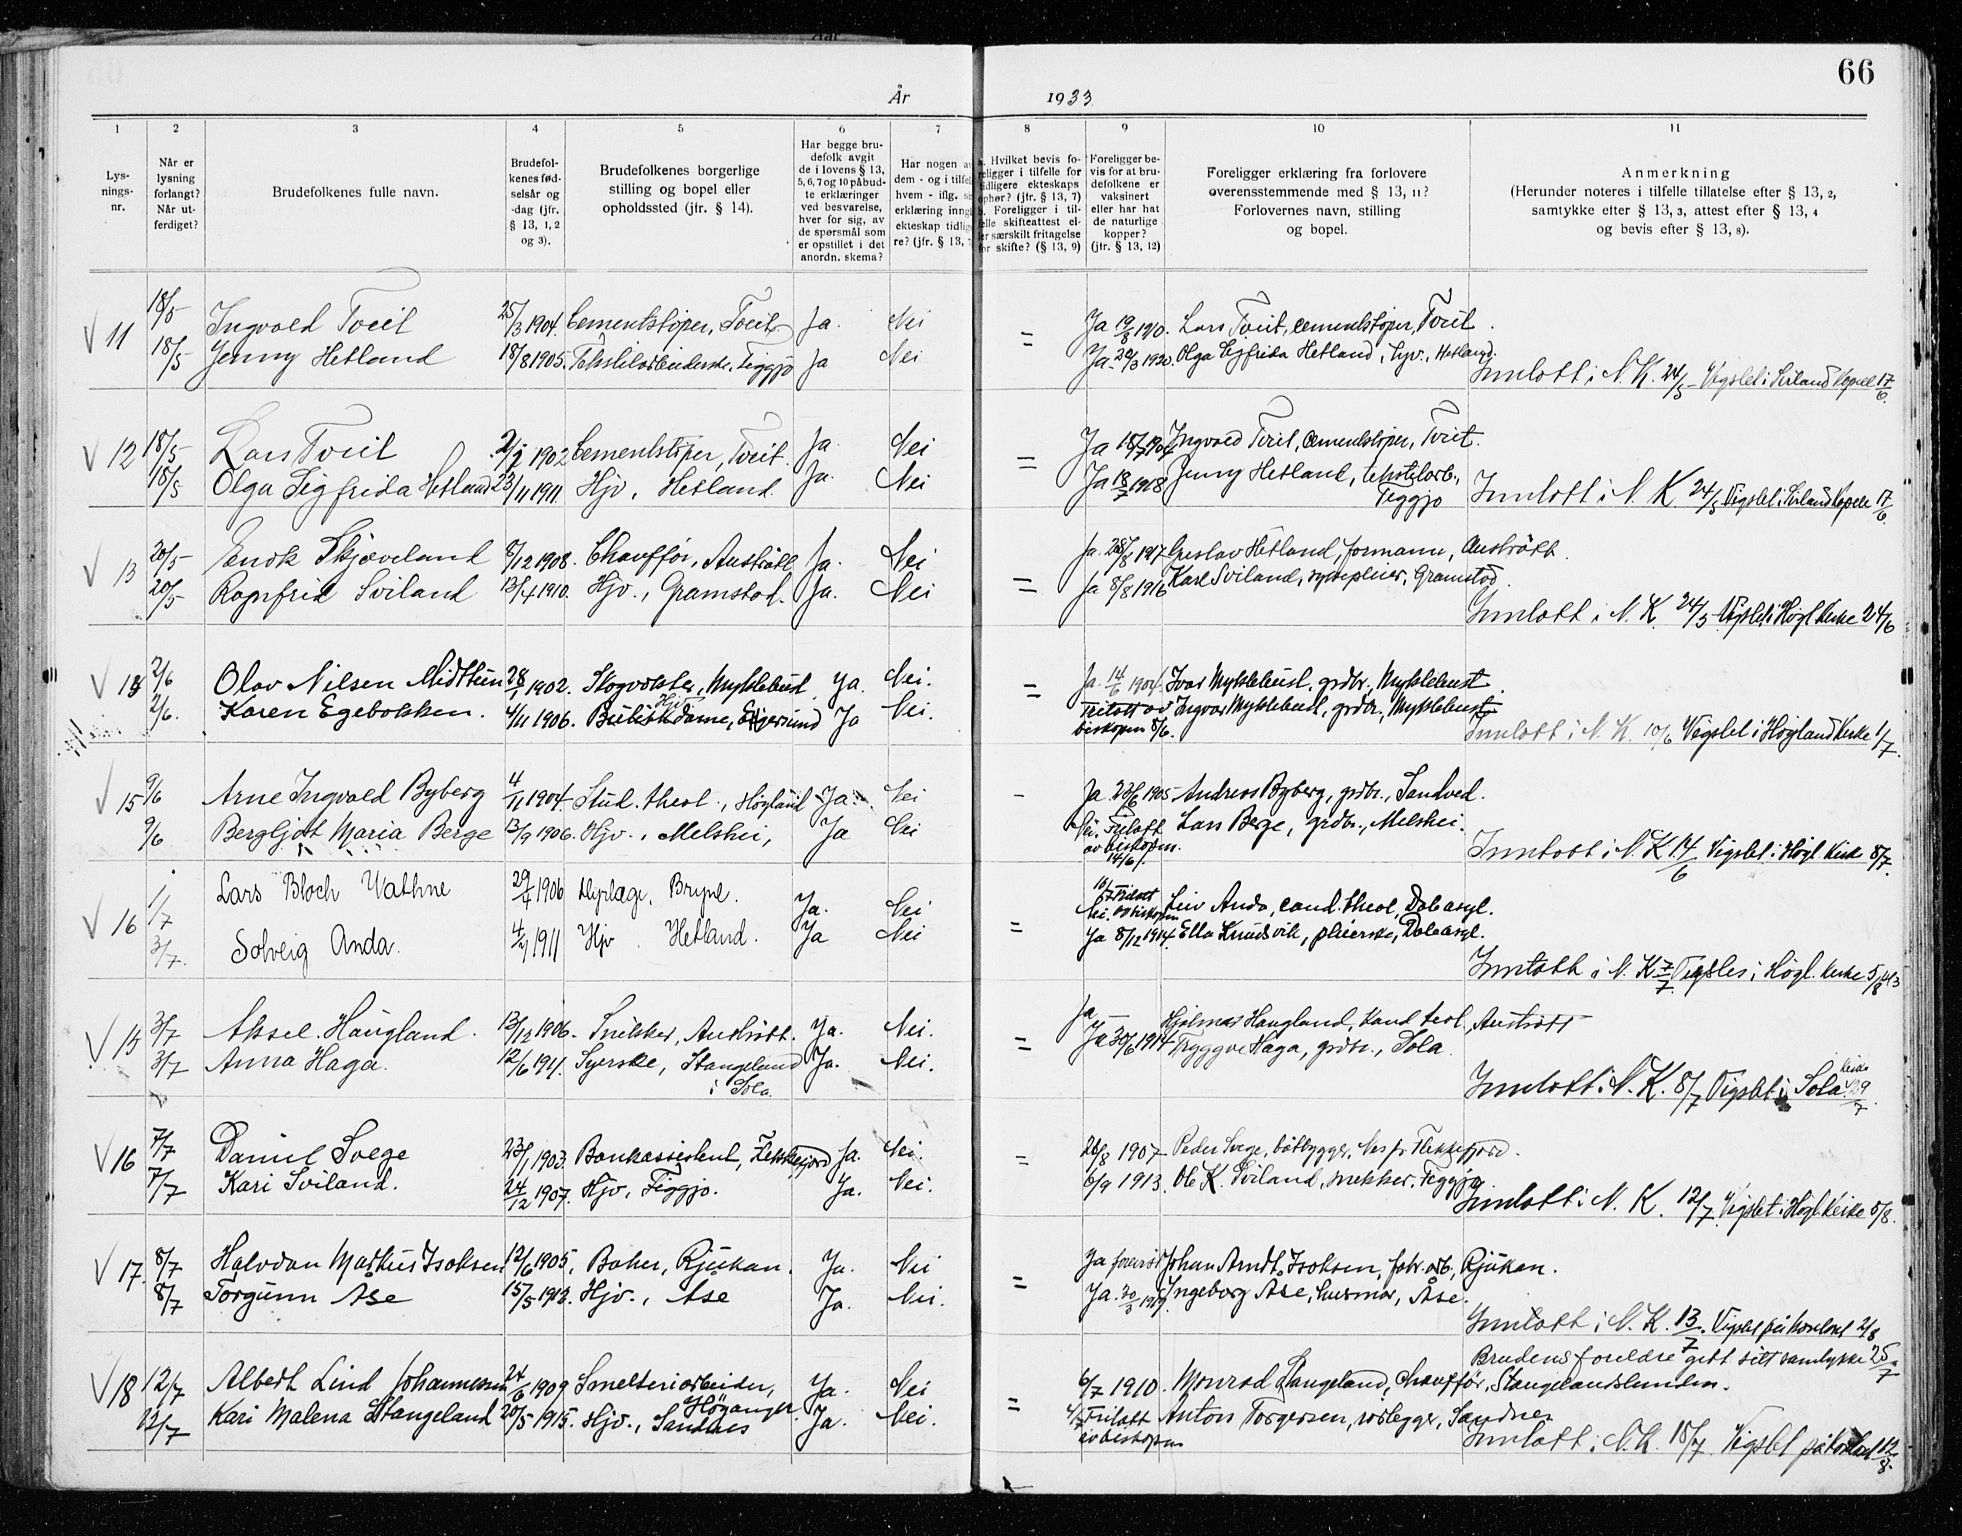 66
År 1933
1 2 3 4 5 6 7 8 9 10 11
Lysningsnr.
Når er lysning forlangt? Når utferdiget?
Brudefolkenes fulle navn.
Brudefolkenes fødselsår og -dag (jfr. § 13, 1, 2 og 3).
Brudefolkenes borgerlige stilling og bopel eller opholdssted (jfr. § 14).
Har begge brudefolk avgit de i lovens § 13, 5, 6, 7 og 10 påbudte erklæringer ved besvarelse, hver for sig, av de spørsmål som er opstillet i det anordn. skema?
Har nogen av dem - og i tilfelle hvem - iflg. erklæring inngått ekteskap tidligere? (jfr. § 13, 7
Hvilket bevis foreligger i tilfelle for tidligere ekteskaps ophør? (jfr. § 13, 7) b. Foreligger i tilfelle skifteattest eller særskilt fritagelse for skifte? (§ 13, 9)
Foreligger bevis for at brudefolkene er vaksinert eller har hat de naturlige kopper? (jfr. § 13, 12)
Foreligger erklæring fra forlovere overensstemmende med § 13, 11? Forlovernes navn, stilling og bopel.
Anmerkning (Herunder noteres i tilfelle tillatelse efter § 13, 2, samtykke efter § 13, 3, attest efter § 13, 4 og bevis efter § 13, 8).
11 18/5 Ingvald Tveit 25/3 1904. Cementstøper, Tveit Ja. Nei = Ja 19/8 1920. Lars Tveit, cementstøper, Tveit.
18/5 Jenny Hetland 18/8 1905. Tekstilarbeiderske, Figgjo Ja Nei Ja. 1920. Olga Sigfrida Hetland, Hjv., Hetland.
Innlatt i N. K. 24/5 Vigslet i Sviland Kapell 17/6.
12 18/5 Lars Tveit 1902 Cementstøper, Tveit. Ja. Nei = Ja 18/7 Ingvald Tveit, Cementstøper, Tveit.
18/5 Olga Sigfrida Hetland 23/11 1911. Hjv, Hetland. Ja. Nei Ja 1918 Jenny Hetland, tekstilarb., Figgjo
Innlatt i N. K 24/5 Vigslet i Sviland Kapell 17/6.
13 20/5 Enok Skjæveland 8/12 1908. Chauffør, Austrått Ja. Nei = Ja. 1917 Hetland, formann, Austrått.
20/5 Ragnfrid Sviland 13/4 1910. Hjv., Gramstad. Ja. Nei Ja 8/8 1916 Karl Sviland, Gramstad.
Innlatt i N. K. 24/5 Vigslet i Høgl. Kirke 24/6
14 2/6 Olav Nilsen Midttun 28/1 1902. Skogvokter, Myklebust. Ja. Nei. = Ja. 14/6 1904. Ivar Myklebust, grdbr., Myklebust.
2/6. Karen Egebakken. 4/11 1906. Butikkdame, Egersund Ja Nei. Fritatt av biskopen 8/6. Ingvar Myklebust, grdbr., Myklebust
Innlatt i N. K. 10/6 Vigslet i Høyland Kirke 1/7.
15 9/6 Arne Ingvald Byberg 4/11 1904. Stud. theol., Høyland Ja. Nei - Ja 23/6 1905 Andreas Byberg, grdbr., Sandved.
9/6 Bergljot Maria Berge 13/9 1906. Hjv., Melshei, Ja Nei Nei. Fritatt av biskopen. 14/6. Lars Berge, grdbr., Melshei.
Innlatt i N. K 14/6 Vigslet i Høgl Kirke 8/7.
16 1/7 Lars Bloch Vathne 29/4 1906 Dyrlæge. Bryne. Ja. Nei = Nei. Fritatt av biskopen Leiv Anda, cand. theol, Daleasyl.
3/7. Solveig Anda. 1911 Hjv. Hetland. Ja Nei Ja 8/12 1914. Ella Knudsvik, pleierske, Daleasyl.
Innlatt i N. K 7/7. Vigsles i Høgl. Kirke 5/8
15 3/7 Aksel Haugland. 13/12 1906. Snikker, Austrått. Ja. Nei. = Ja Hjalmar Haugland, Kand teol, Austrått
3/7 Anna Haga. 12/6 1911. Syerske, Stangeland i Sola. Ja. Nei. Ja 30/6 1914 Tryggve Haga, grdbr., Sola.
Innlatt i N. K. 8/7 Vigslet i Sola Kirke 29/7.
16 7/7 Daniel Svege 23/1 1903. Bankassistent, Flekkefjord Ja. Nei. = 26/8 1907 Peder Svege, båtbygger, Nes pr Flekkefjord.
7/7 Kari Sviland. 24/12 1907. Hjv., Figgjo. Ja. Nei. 6/9 1913. Ole K. Sviland, snekker. Figgjo.
Innlatt i N. K. 12/7. Vigslet i Høgl. Kirke 5/8.
17. 8/7 Halvdan Markus Isaksen 12/6 1905, Baker, Rjukan. Ja. Nei = Ja forevist Johan Arndt Isaksen, fabr. arb, Rjukan.
8/7 Torgunn Åse 15/5 1913. Hjv., Åse Ja. Nei. Ja. Ingeborg Åse, husmor, Åse.
Innlatt i N. K. 13/7. Vigslet på kontoret 2/8
Brudens foreldre gitt sitt samtykke 25/7
18 12/7 Albert Lind Johannessen 24/6 1909 Smelteriarbeider, Høyanger Ja. Nei = 6/7 1910. Monrad Stangeland, Chauffør, Stangelandslunden.
12/7 Kari Malena Stangeland 20/5 1915. Hjv., Sandnes Ja. Nei. Fritatt av biskopen Anton Torgersen, rørlegger, Sandnes
Innlatt i N. K. 18/7. Vigslet på kontoret 12/8.